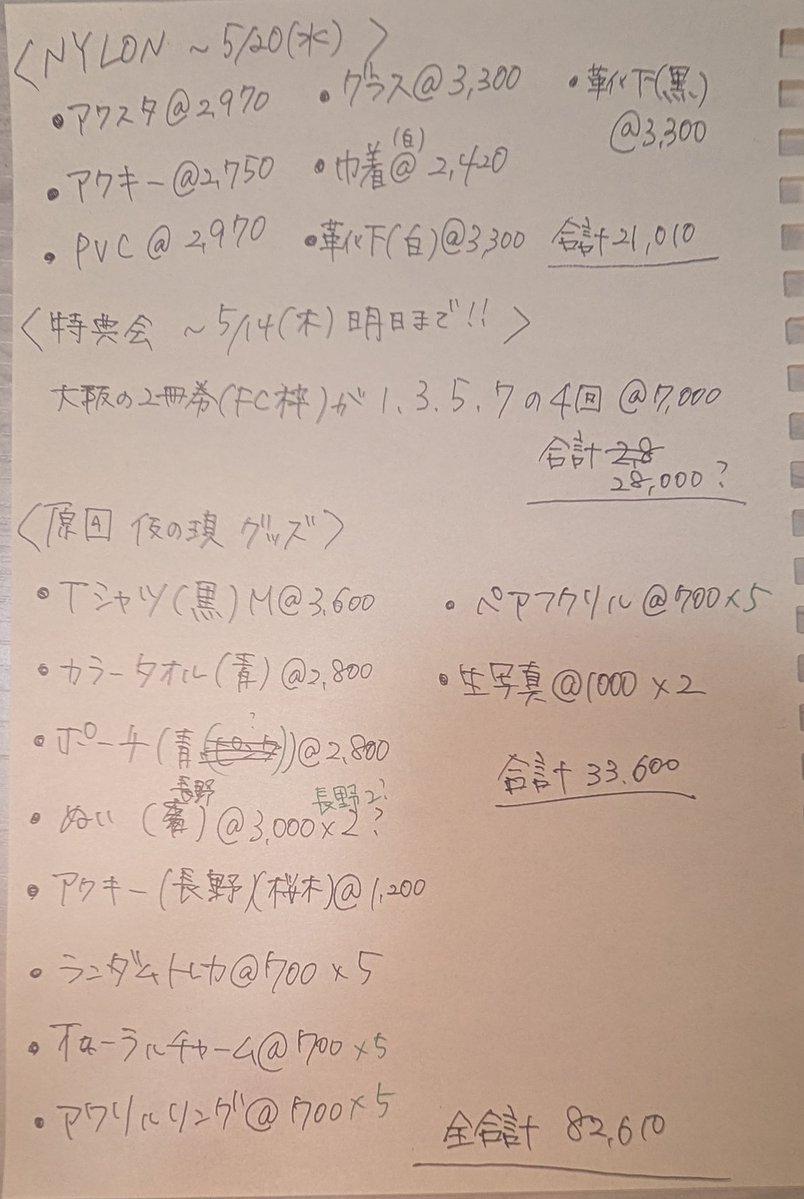 〈NYLON ～5/20(水)〉
・アクスタ@2,970
・グラス@3,300
・靴下(黒)
@3,300
・アクキー@2,750
・巾着(白)@2,420
・PVC@2,970
・靴下(白)@3,300
合計21,010
〈特典会 ～5/14(木)明日まで!!〉
大阪の2冊券(FC枠)が1.3.5.7の4回@7,000
合計
28,000?
〈原因 仮の現 グッズ〉
・Tシャツ(黒)M@3,600
・ペアアクリル@700×5
・カラータオル(青)@2,800
・生写真@1000×2
・ポーチ(青)@2,800
合計33,600
・ぬい(長野)@3,000×2?
長野2?
・アクキー(長野)(桜木)@1,200
・ランダムトレカ@700×5
・チャーム@700×5
・アクリルリング@700×5
全合計 82,610